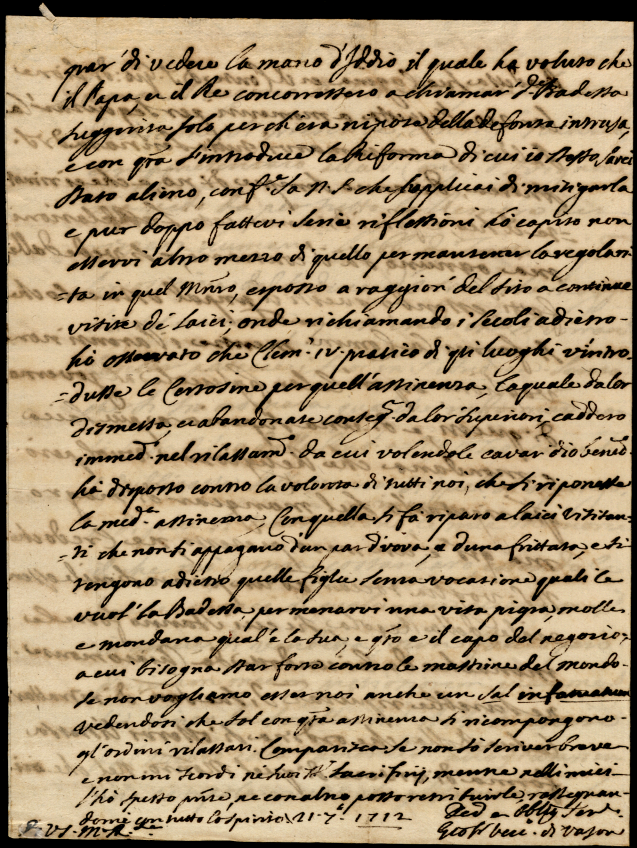 par' di vedere la mano d'Iddio il quale ha voluto che
il Papa, e il Re concorressero a chiamar' d. Badessa
suggerita solo perch'era nipote della defonta intrusa,
e con qta s'introduce la Riforma di cui io stesso
stato alieno, conf. Sa N.S. che supplicai di mitigarla
e pur doppo fattevi serie riflessioni hò capito non
esservi altro mezzo di quello per mantener la regolari
=tà in quel Mnro, esposto a raggion' del sito a continue
visite de' laici, onde richiamando i secoli adietro
hò osservato che Clem. IV pratico di qti luoghi v'intro
=dusse le Certosine per quell'astinenza, la quale da lor
dismessa, e abandonate conseq. da lor Superiori, caddero
immed. nel rilassam. da cui volendole cavar Dio bened.
hà disposto contro la volontà di tutti noi, che si riponesse
la med.a astinenza, Con quella si fà riparo a laici visitan
=ti che non si appagano d'un par d'uova, e d'una frittata, e si
tengono adietro quelle figlie senza vocazione quali le
vuol' la Badessa per menarvi una vita pigra, molle
e mondana qual'è la sua, e qto e il capo del negozio,
a cui bisogna star forte contro le massime del mondo
se non vogliamo esser noi anche un sal infatuatum
vedendosi che sol con qta astinenza si ricompongono
gl'ordini rilassati. Compatisca se non sò scriver breve
e non mi scordi ne suoi Sti Sacrifizij, mentre nelli miei
l'hò spesso pnte, ne con altro posso retribuirle rassegnan
domi con tutto lo spirito 21. 7.e 1712
Dev. e Obblig. Ser.
P. VS. M. R.
Vesc. di Vason